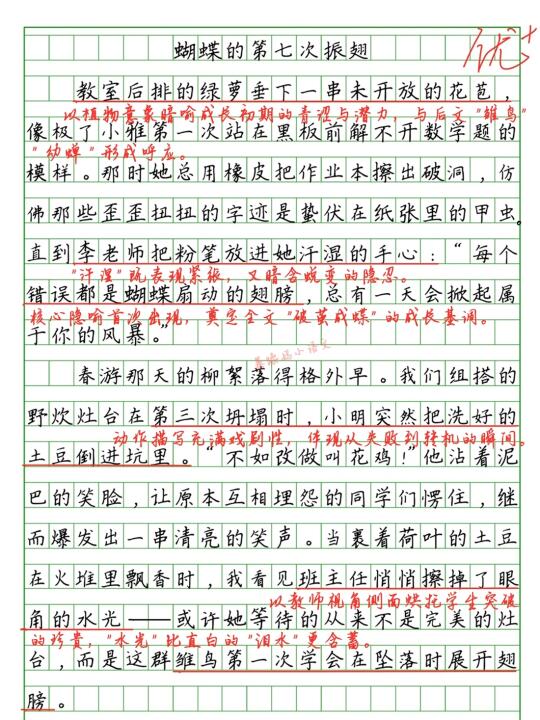 蝴蝶的第七次振翅
优+
教室后排的绿萝垂下一串未开放的花苞，
以植物意象暗喻成长初期的青涩与潜力，与后文"雏鸟"
像极了小雅第一次站在黑板前解不开数学题的
"幼蝉"形成呼应。
模样。那时她总用橡皮把作业本擦出破洞，仿
佛那些歪歪扭扭的字迹是蛰伏在纸张里的甲虫。
直到李老师把粉笔放进她汗湿的手心："每个
"汗湿"既表现紧张，又暗含蜕变的隐忍。
错误都是蝴蝶扇动的翅膀，总有一天会掀起属
核心隐喻首次出现，奠定全文"破茧成蝶"的成长基调。
于你的风暴。"
春游那天的柳絮落得格外早。我们组搭的
野炊灶台在第三次坍塌时，小明突然把洗好的
动作描写充满戏剧性，体现从失败到转机的瞬间。
土豆倒进坑里。"不如改做叫花鸡！"他沾着泥
巴的笑脸，让原本互相埋怨的同学们愣住，继
而爆发出一串清亮的笑声。当裹着荷叶的土豆
在火堆里飘香时，我看见班主任悄悄擦掉了眼
以教师视角侧面烘托学生突破
角的水光——或许她等待的从来不是完美的灶
的珍贵，"水光"比直白的"泪水"更含蓄。
台，而是这群雏鸟第一次学会在坠落时展开翅
膀。